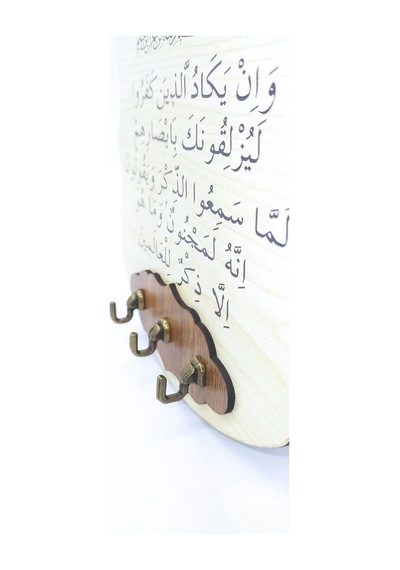 وَاِنْ يَكَادُ الَّذينَ كَفَرُوا
لَيُزْلِقُونَكَ بِاَبْصَارِهِمْ
لَمَّا سَمِعُوا الذِّكْرَ وَيَقُولُونَ
اِنَّهُ لَمَجْنُونٌ وَمَا هُوَ
اِلَّا ذِكْرٌ لِلْعَالَمينَ